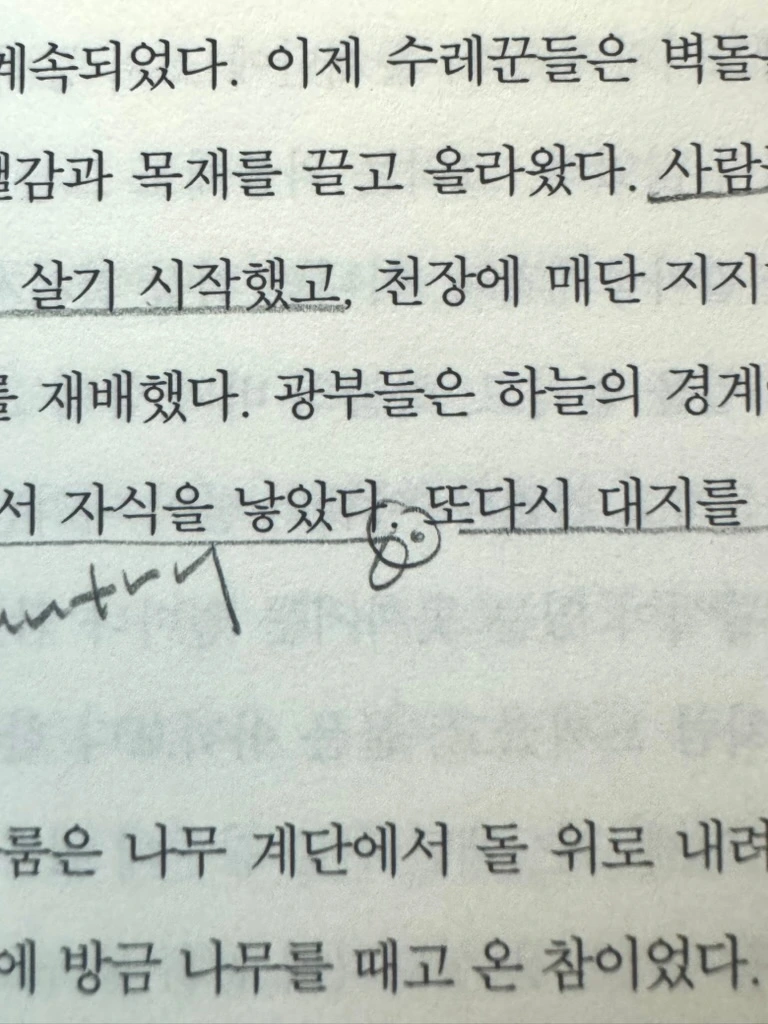 계속되었다. 이제 수레꾼들은 벽돌
땔감과 목재를 끌고 올라왔다. 사람
살기 시작했고, 천장에 매단 지지
를 재배했다. 광부들은 하늘의 경계
서 자식을 낳았다. 또다시 대지를
룸은 나무 계단에서 돌 위로 내려
에 방금 나무를 때고 온 참이었다.